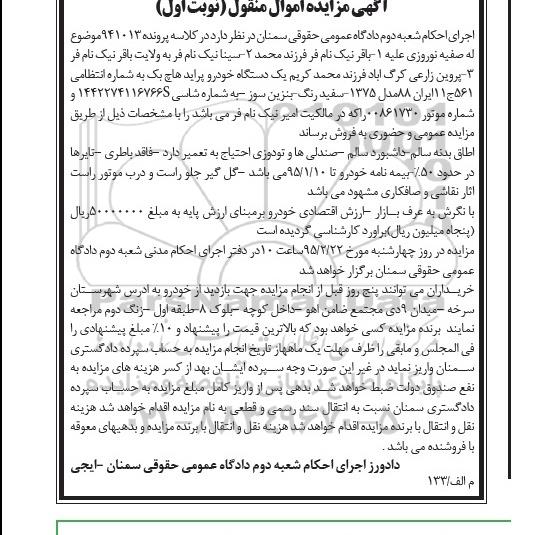 آگهی مزایده اموال منقول (نوبت اول)
اجرای احکام شعبه دوم دادگاه عمومی حقوقی سمنان در نظر دارد در کلاسه پرونده ۹۴۱۰۱۳ موضوع
له صفیه نوروزی علیه ۱-باقر نیک نام فر فرزند محمد ۲-سینا نیک نام فر به ولایت باقر نیک نام فر
۳-پروین زارعی کرگ اباد فرزند محمد کریم یک دستگاه خودرو پراید هاچ بک به شماره انتظامی
۵۶۱ج۱۱ایران ۸۸مدل ۱۳۷۵-سفید رنگ-بنزین سوز –به شماره شاسی S۱۴۴۲۲۷۴۱۱۶۷۶۶ و
شماره موتور ۰۰۸۶۱۷۳۰راکه در مالکیت امیر نیک نام فر می باشد را با مشخصات ذیل از طریق
مزایده عمومی و حضوری به فروش برساند
اطاق بدنه سالم-داشبورد سالم –صندلی ها و تودوزی احتیاج به تعمیر دارد –فاقد باطری –تایرها
در حدود ۵۰٪-بیمه نامه خودرو تا ۹۵/۱/۱۰می باشد –گل گیر جلو راست و درب موتور راست
اثار نقاشی و صافکاری مشهود می باشد
با نگرش به عرف بازار –ارزش اقتصادی خودرو برمبنای ارزش پایه به مبلغ ۵۰۰۰۰۰۰۰ریال
(پنجاه میلیون ریال)براورد کارشناسی گردیده است
مزایده در روز چهارشنبه مورخ ۹۵/۲/۲۲ساعت ۱۰در دفتر اجرای احکام مدنی شعبه دوم دادگاه
عمومی حقوقی سمنان برگزار خواهد شد
خریداران می توانند پنج روز قبل از انجام مزایده جهت بازدید از خودرو به ادرس شهرستان
سرخه –میدان ۹دی مجتمع ضامن اهو –داخل کوچه –بلوک ۸-طبقه اول –زنگ دوم مراجعه
نمایند برنده مزایده کسی خواهد بود که بالاترین قیمت را پیشنهاد و ۱۰٪ مبلغ پیشنهادی را
فی المجلس و مابقی را ظرف مهلت یک ماه‌از تاریخ انجام مزایده به حساب سپرده دادگستری
سمنان واریز نماید در غیر این صورت وجه سپرده ایشان بهد از کسر هزینه های مزایده به
نفع صندوق دولت ضبط خواهد شد بدهی پس از واریز کامل مبلغ مزایده به حساب سپرده
دادگستری سمنان نسبت به انتقال سند رسمی و قطعی به نام مزایده اقدام خواهد شد هزینه
نقل و انتقال با برنده مزایده اقدام خواهد شد هزینه نقل و انتقال با برنده مزایده و بدهیهای معوقه
با فروشنده می باشد .
دادورز اجرای احکام شعبه دوم دادگاه عمومی حقوقی سمنان –ایجی
م الف/۱۳۳